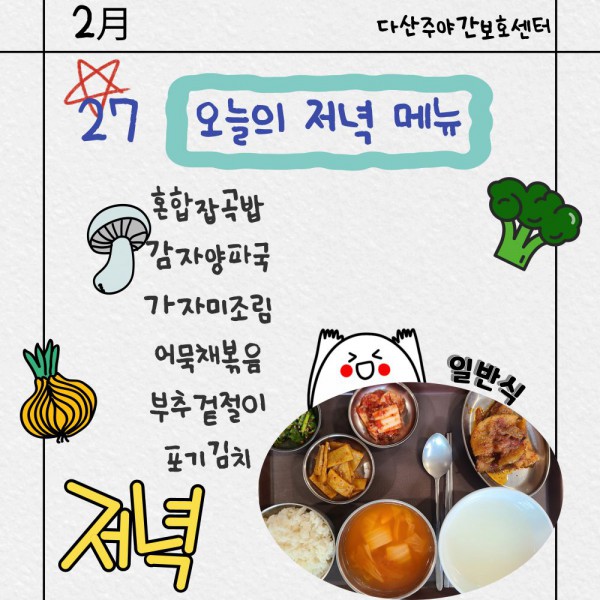 2月
다산주야간보호센터
27
오늘의 저녁 메뉴
혼합잡곡밥
감자양파국
가자미조림
어묵채볶음
부추겉절이
포기김치
일반식
저녁